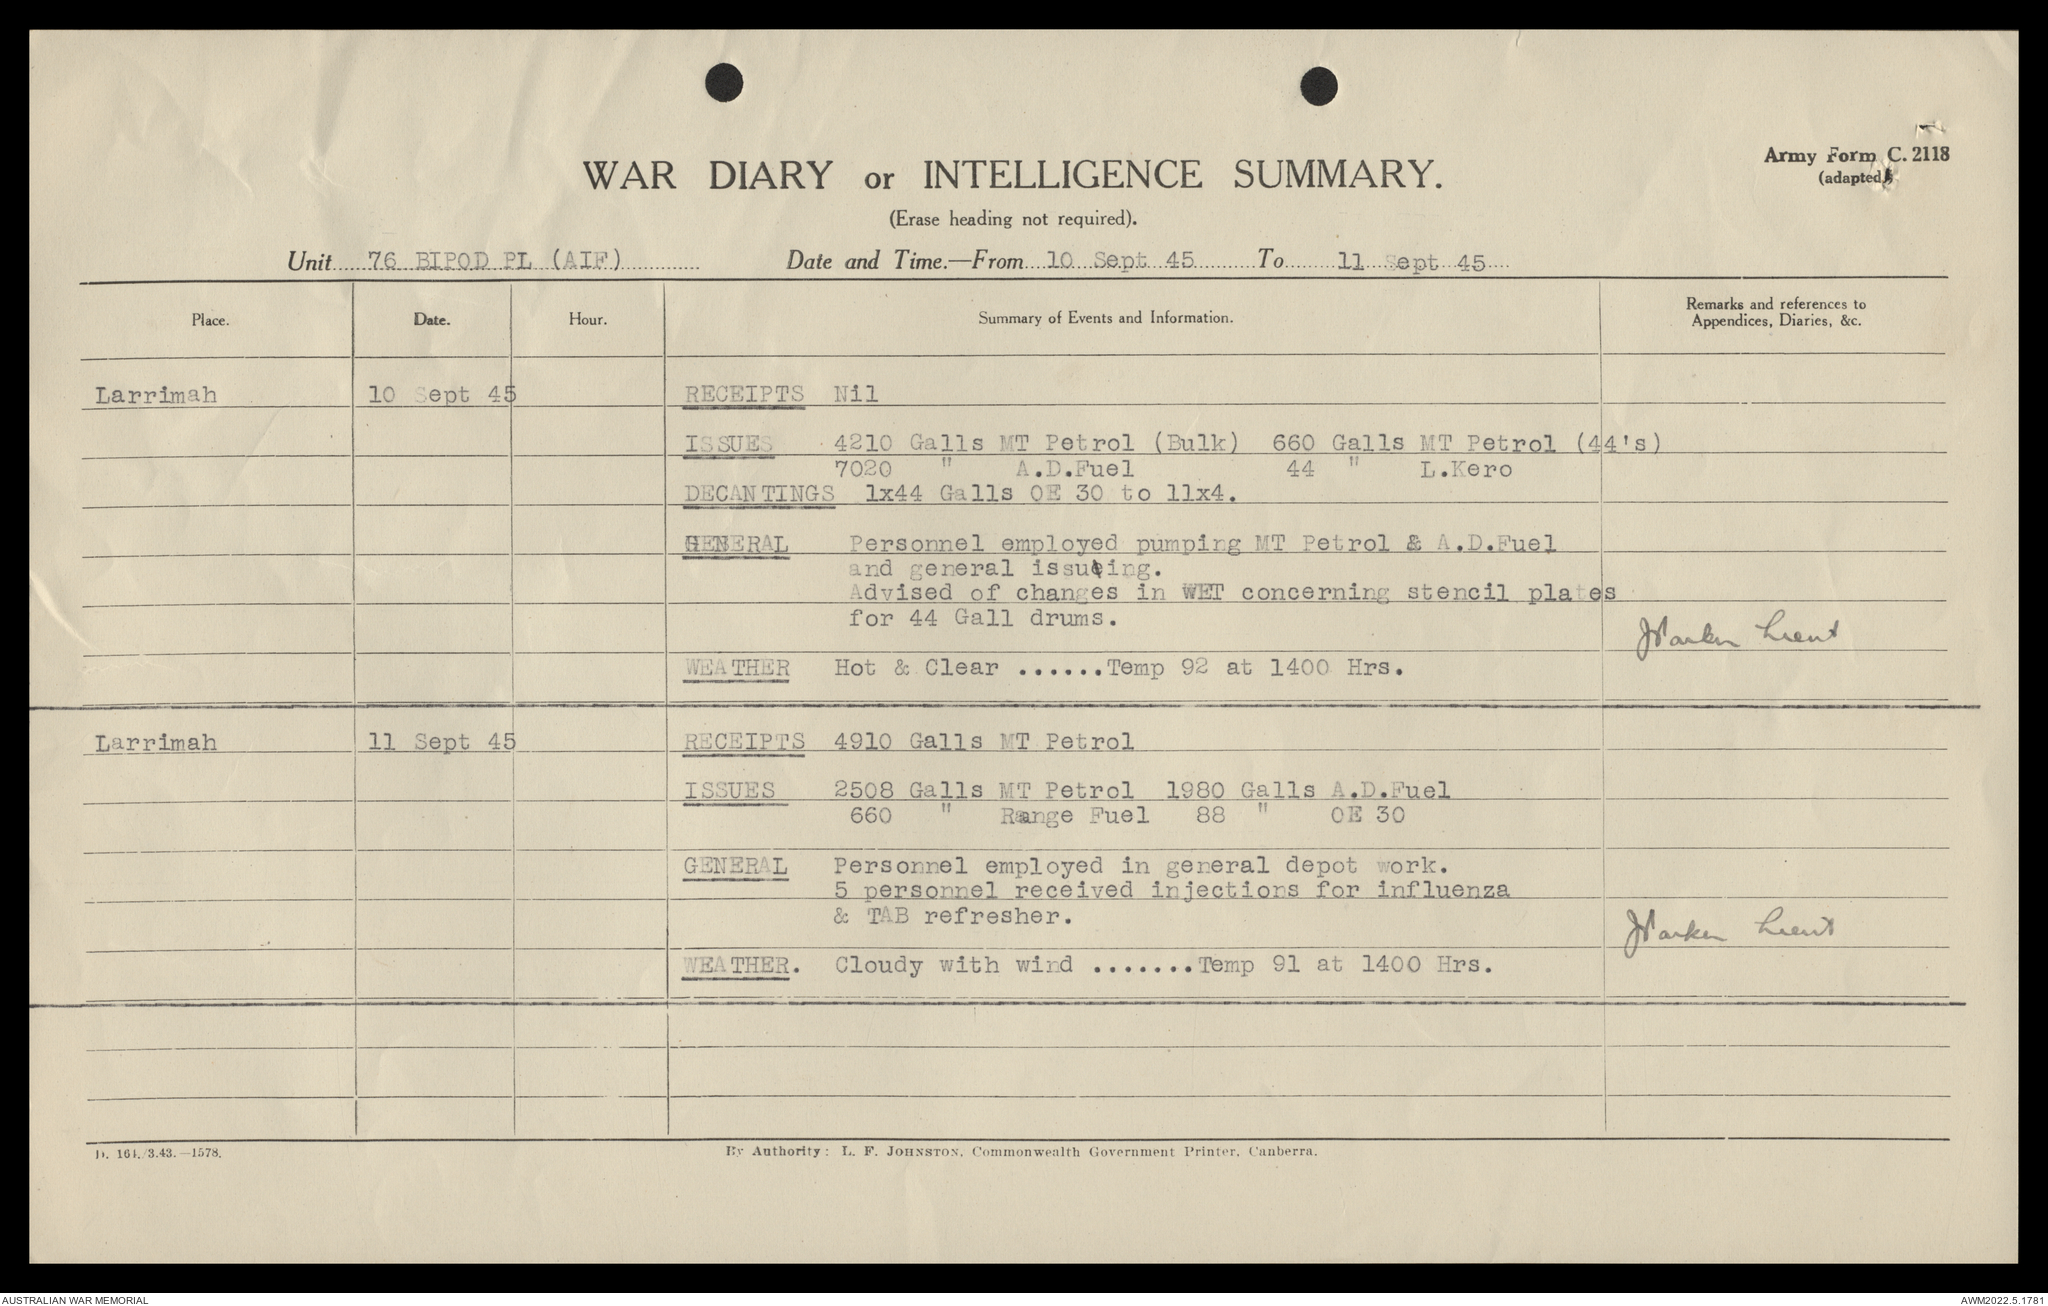 Army Form C. 2118
(adapted)
WAR DIARY or INTELLIGENCE SUMMARY.
(Erase heading not required).
Unit 76 BIPOD PL (AIF) Date and Time.—From 10 Sept 45 To 11 Sept 45
Place. Date. Hour. Summary of Events and Information. Remarks and references to
Appendices, Diaries, &c.
Larrimah 10 Sept 45 RECEIPTS Nil
ISSUES 4210 Galls MT Petrol (Bulk) 660 Galls MT Petrol (44's)
7020 " A.D.Fuel 44 " L.Kero
DECANTINGS 1x44 Galls OE 30 to 11x4.
GENERAL Personnel employed pumping MT Petrol & A.D.Fuel
and general issuing.
Advised of changes in WET concerning stencil plates
for 44 Gall drums.
Lieut
WEATHER Hot & Clear ......Temp 92 at 1400 Hrs.
Larrimah 11 Sept 45 RECEIPTS 4910 Galls MT Petrol
ISSUES 2508 Galls MT Petrol 1980 Galls A.D.Fuel
660 " Range Fuel 88 " OE 30
GENERAL Personnel employed in general depot work.
5 personnel received injections for influenza
& TAB refresher.
Lieut
WEATHER. Cloudy with wind .......Temp 91 at 1400 Hrs.
D. 164./3.43.—1578.
By Authority: L. F. JOHNSTON, Commonwealth Government Printer, Canberra.
AUSTRALIAN WAR MEMORIAL
AWM2022.5.1781